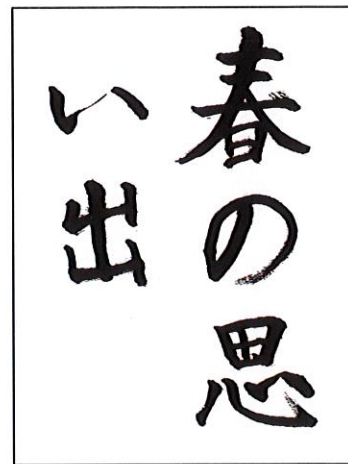 春の思
い出